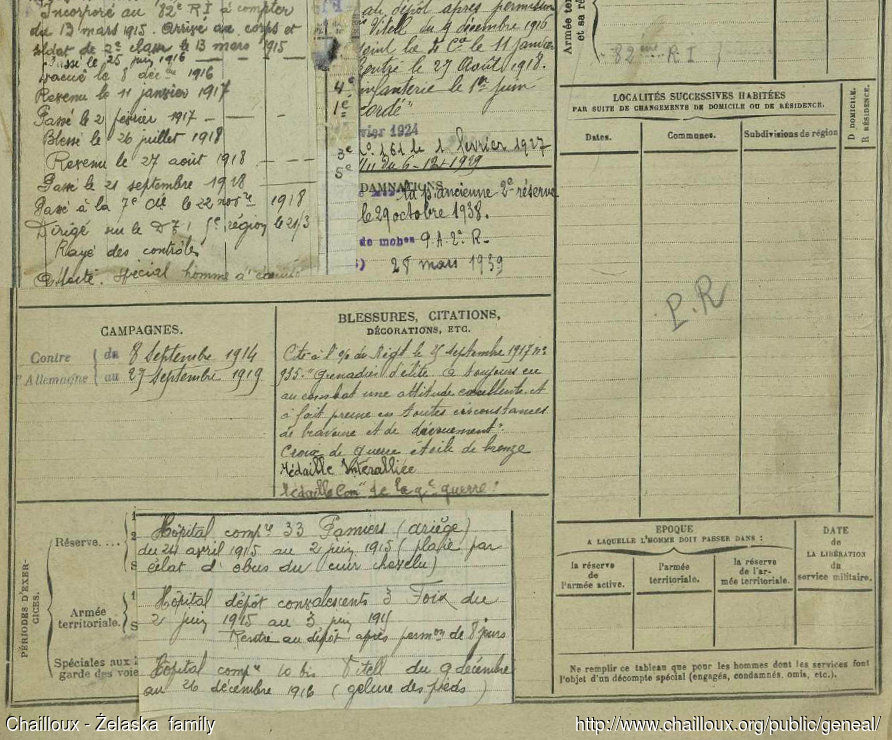 Incorporé au 82e R I à compter
du 13 mars 1915. Arrivé au corps et
soldat de 2e classe le 13 mars 1915
Passé le 25 juin 1916
Evacué le 8 déce 1916
Revenu le 11 janvier 1917
Passé le 2 février 1917
Blessé le 26 juillet 1918
Revenu le 27 août 1918
Passé le 21 septembre 1918
Passé à la 7e Cie le 22 novre 1918
Dirigé sur le D 5e région le 21/3
Rayé des contrôles
spécial homme
au dépôt après permission
Vitell du 9 décembre 1916
le 11 janvier
le 27 Août 1918.
4e
infanterie le 1er juin
1e
cordé"
vrier 1924
3e
no 161 du 1 février 1927
5e
du 6-12-1929
DAMNATIONS
la Don ancienne 2e réserve
le 29 octobre 1938.
de mobon 9.A.2e.R.
28 mars 1939
Armée ter
et sa ré
82ème R I
LOCALITÉS SUCCESSIVES HABITÉES
PAR SUITE DE CHANGEMENTS DE DOMICILE OU DE RÉSIDENCE.
Dates.
Communes.
Subdivisions de région
D. DOMICILE.
R. RÉSIDENCE.
P.R
CAMPAGNES.
Contre l'Allemagne
du 8 Septembre 1914
au 27 Septembre 1919
BLESSURES, CITATIONS,
DÉCORATIONS, ETC.
Cité à l'o/o du Régt le 25 septembre 1917 no
935. "Grenadier d'élite. A toujours eu
au combat une attitude excellente et
a fait preuve en toutes circonstances
de bravoure et de dévouement".
Croix de guerre étoile de bronze
Médaille Interalliée
Médaille Comve de la gde guerre.
PÉRIODES D'EXER-
CICES.
Réserve....
Armée
territoriale.
Spéciales aux
garde des voie
Hôpital compre 33 Pamiers (ariège)
du 24 avril 1915 au 2 juin 1915 (plaie par
éclat d'obus du cuir chevelu)
Hôpital dépôt convalescents 3 Foix du
2 juin 1915 au 3 juin 1915
Rentre au dépôt après permon de 8 jours
Hôpital compre 10 bis Vitell du 9 décembre
au 26 décembre 1916 (gelure des pieds)
EPOQUE
A LAQUELLE L'HOMME DOIT PASSER DANS :
la réserve
de
l'armée active.
l'armée
territoriale.
la réserve
de l'ar-
mée territoriale.
DATE
de
LA LIBÉRATION
du
service militaire.
Ne remplir ce tableau que pour les hommes dont les services font
l'objet d'un décompte spécial (engagés, condamnés, omis, etc.).
Chailloux - Želaska family
http://www.chailloux.org/public/geneal/